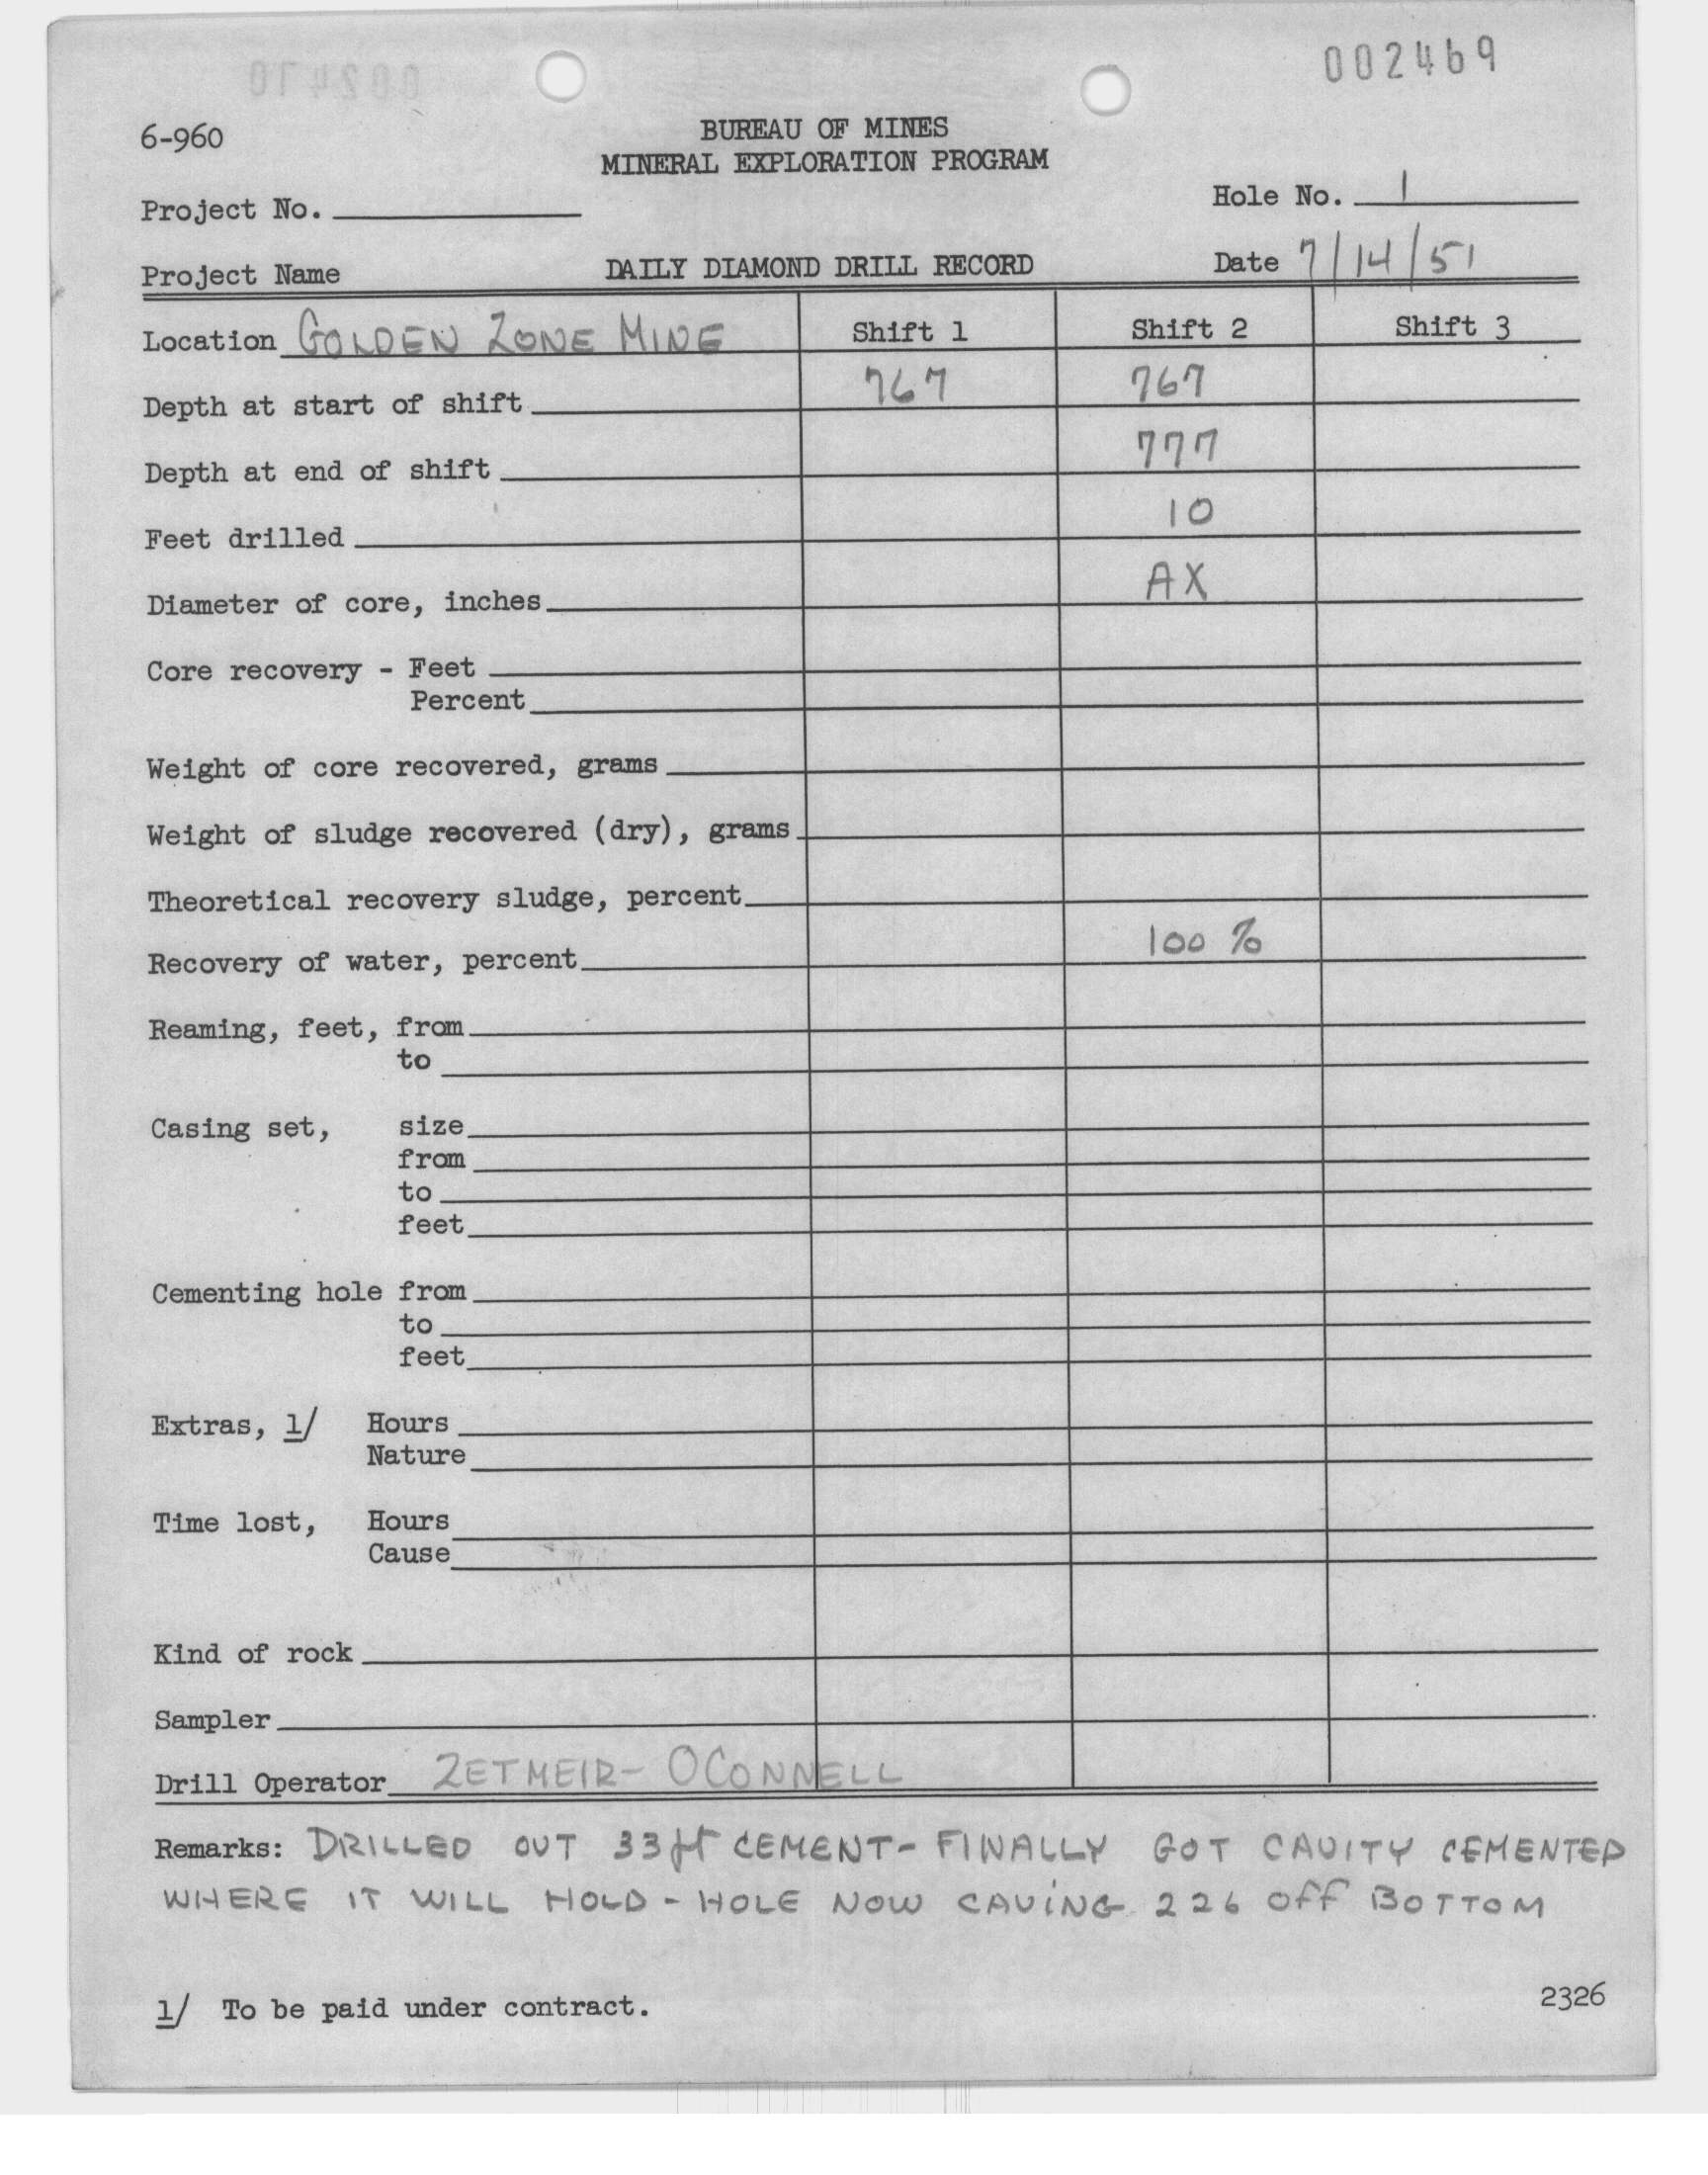 002469
002470
6-960
BUREAU OF MINES
MINERAL EXPLORATION PROGRAM
Project No.
Hole No. 1
Project Name
DAILY DIAMOND DRILL RECORD
Date 7/14/51
Location GOLDEN ZONE MINE Shift 1 Shift 2 Shift 3
Depth at start of shift 767 767
Depth at end of shift 777
Feet drilled 10
Diameter of core, inches AX
Core recovery - Feet
Percent
Weight of core recovered, grams
Weight of sludge recovered (dry), grams
Theoretical recovery sludge, percent
Recovery of water, percent 100 %
Reaming, feet, from
to
Casing set, size
from
to
feet
Cementing hole from
to
feet
Extras, 1/ Hours
Nature
Time lost, Hours
Cause
Kind of rock
Sampler
Drill Operator ZETMEIR- OCONNELL
Remarks: DRILLED OUT 33 ft CEMENT- FINALLY GOT CAVITY CEMENTED
WHERE IT WILL HOLD - HOLE NOW CAVING 226 OFF BOTTOM
1/ To be paid under contract.
2326